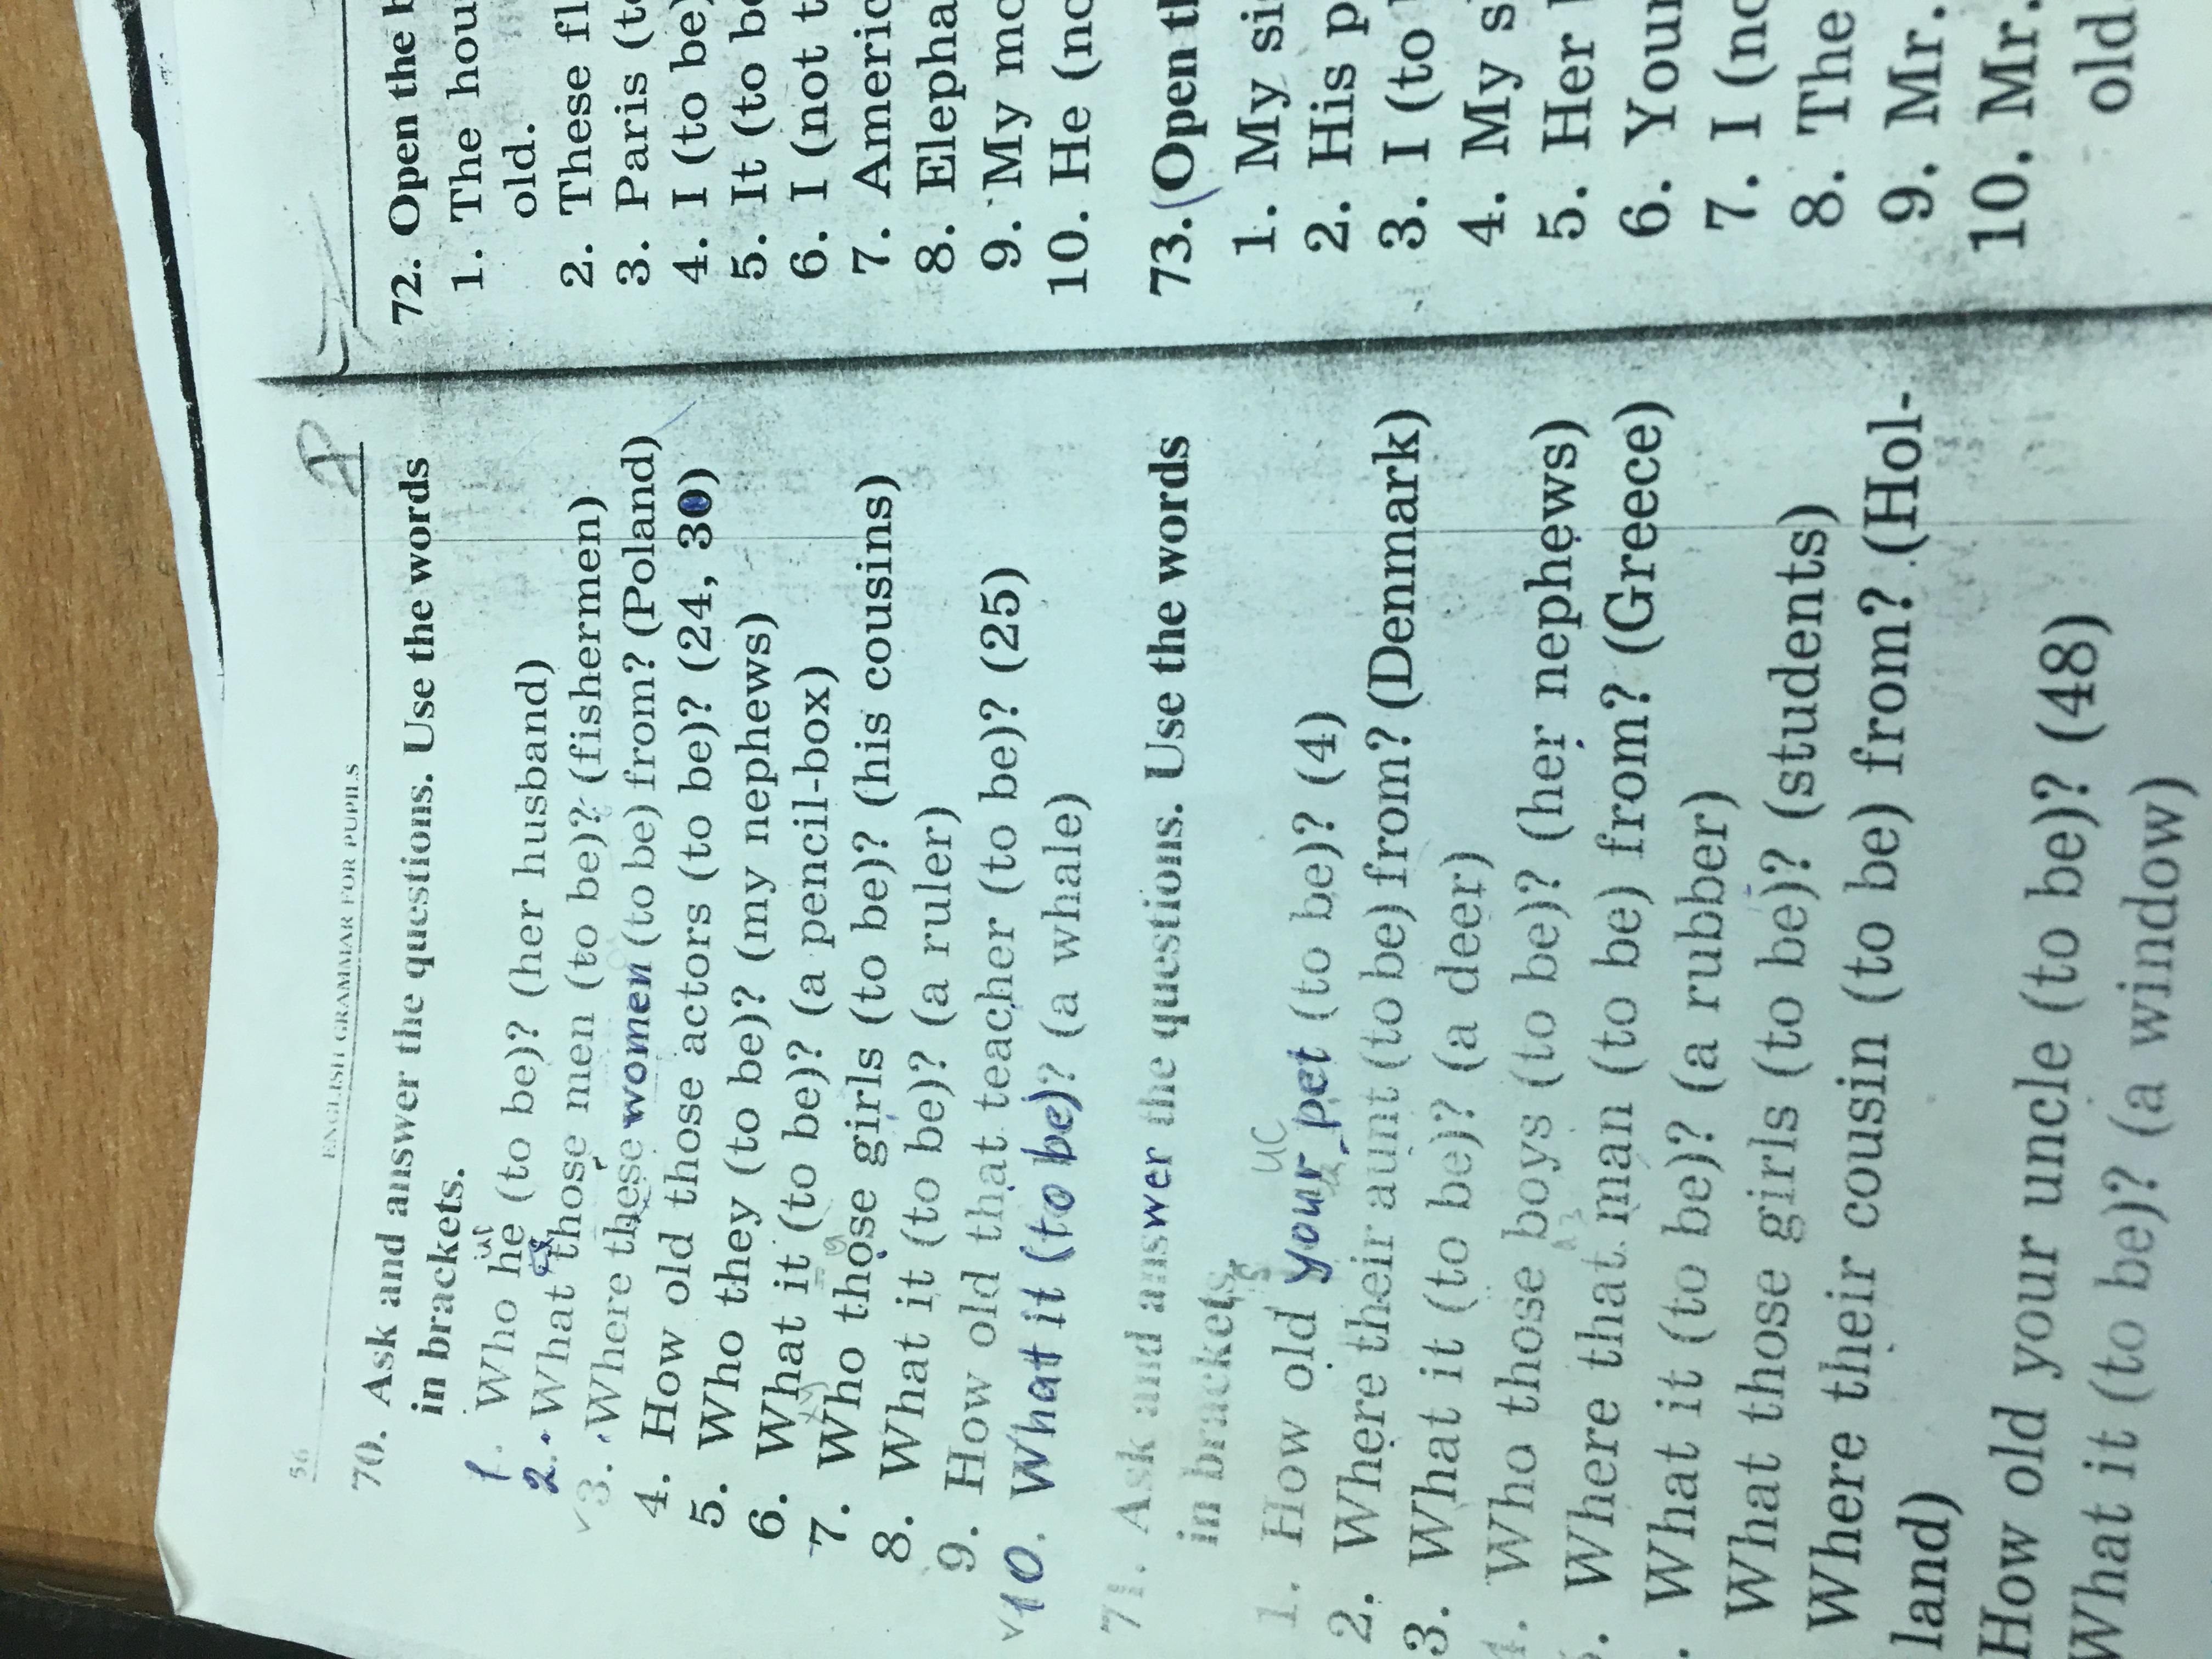 56
ENGLISH GRAMMAR FOR PUPILS
70. Ask and answer the questions. Use the words
in brackets.
1. Who he (to be)? (her husband)
2. What those men (to be)? (fishermen)
3. Where these women (to be) from? (Poland)
4. How old those actors (to be)? (24, 30)
5. Who they (to be)? (my nephews)
6. What it (to be)? (a pencil-box)
7. Who those girls (to be)? (his cousins)
8. What it (to be)? (a ruler)
9. How old that teacher (to be)? (25)
10. What it (to be)? (a whale)
71. Ask and answer the questions. Use the words
in brackets.
1. How old your pet (to be)? (4)
2. Where their aunt (to be) from? (Denmark)
3. What it (to be)? (a deer)
4. Who those boys (to be)? (her nephews)
. Where that man (to be) from? (Greece)
. What it (to be)? (a rubber)
What those girls (to be)? (students)
Where their cousin (to be) from? (Hol-
land)
How old your uncle (to be)? (48)
What it (to be)? (a window)
72. Open the b
1. The hou
old.
2. These fl
3. Paris (to
4. I (to be)
5. It (to be
6. I (not t
7. Americ
8. Elepha
9. My mo
10. He (no
73. (Open th
1. My si
2. His p
3. I (to
4. My s
5. Her
6. Your
7. I (no
8. The
9. Mr.
10. Mr.
old